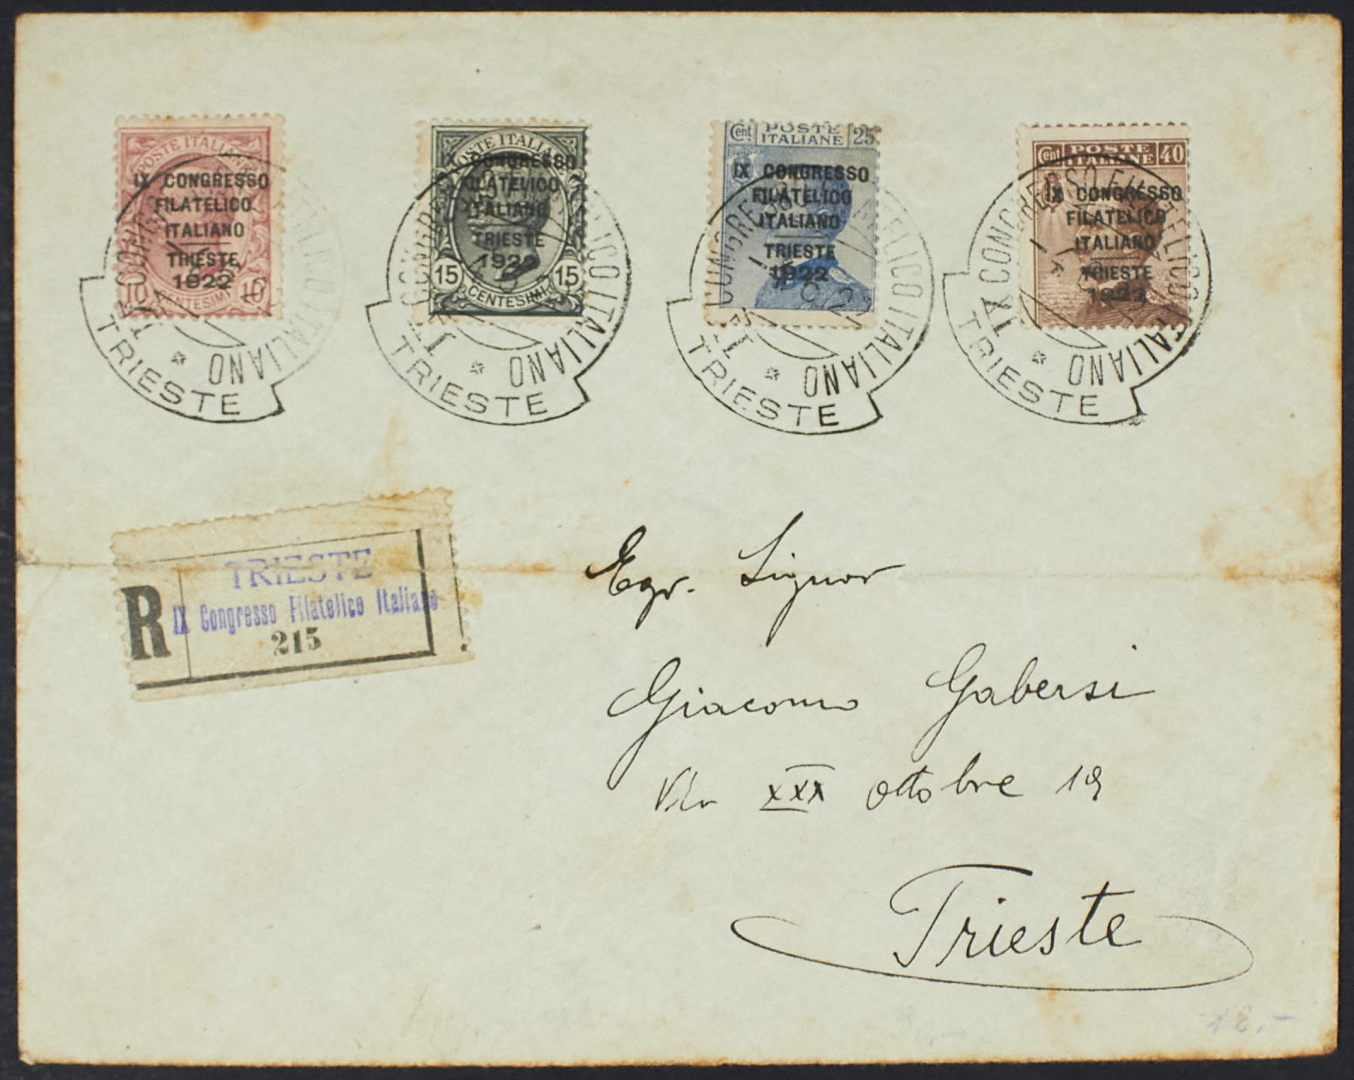 POSTE ITALIANE
IX CONGRESSO
FILATELICO
ITALIANO
TRIESTE
1922
10 CENTESIMI 10
POSTE ITALIANE
IX CONGRESSO
FILATELICO
ITALIANO
TRIESTE
1922
15 CENTESIMI 15
Cent POSTE ITALIANE 25
IX CONGRESSO
FILATELICO
ITALIANO
TRIESTE
1922
Cent POSTE ITALIANE 40
IX CONGRESSO
FILATELICO
ITALIANO
TRIESTE
1922
IX CONGRESSO FILATELICO ITALIANO
TRIESTE
IX CONGRESSO FILATELICO ITALIANO
TRIESTE
IX CONGRESSO FILATELICO ITALIANO
TRIESTE
IX CONGRESSO FILATELICO ITALIANO
TRIESTE
R
TRIESTE
IX Congresso Filatelico Italiano
215
Egr. Signor
Giacomo Gabersi
Via XXX Ottobre 19
Trieste